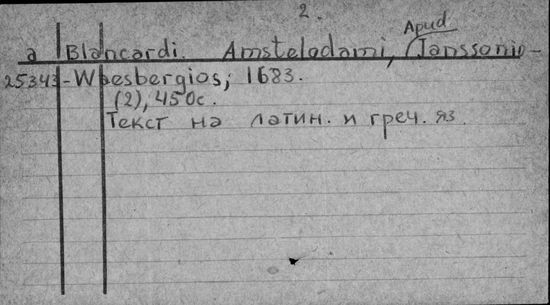 2.
Apud
a Blancardi. Amstelodami, Janssonio-
25343 -Waesbergios, 1683.
(2), 450с.
Текст на латин. и греч. яз.